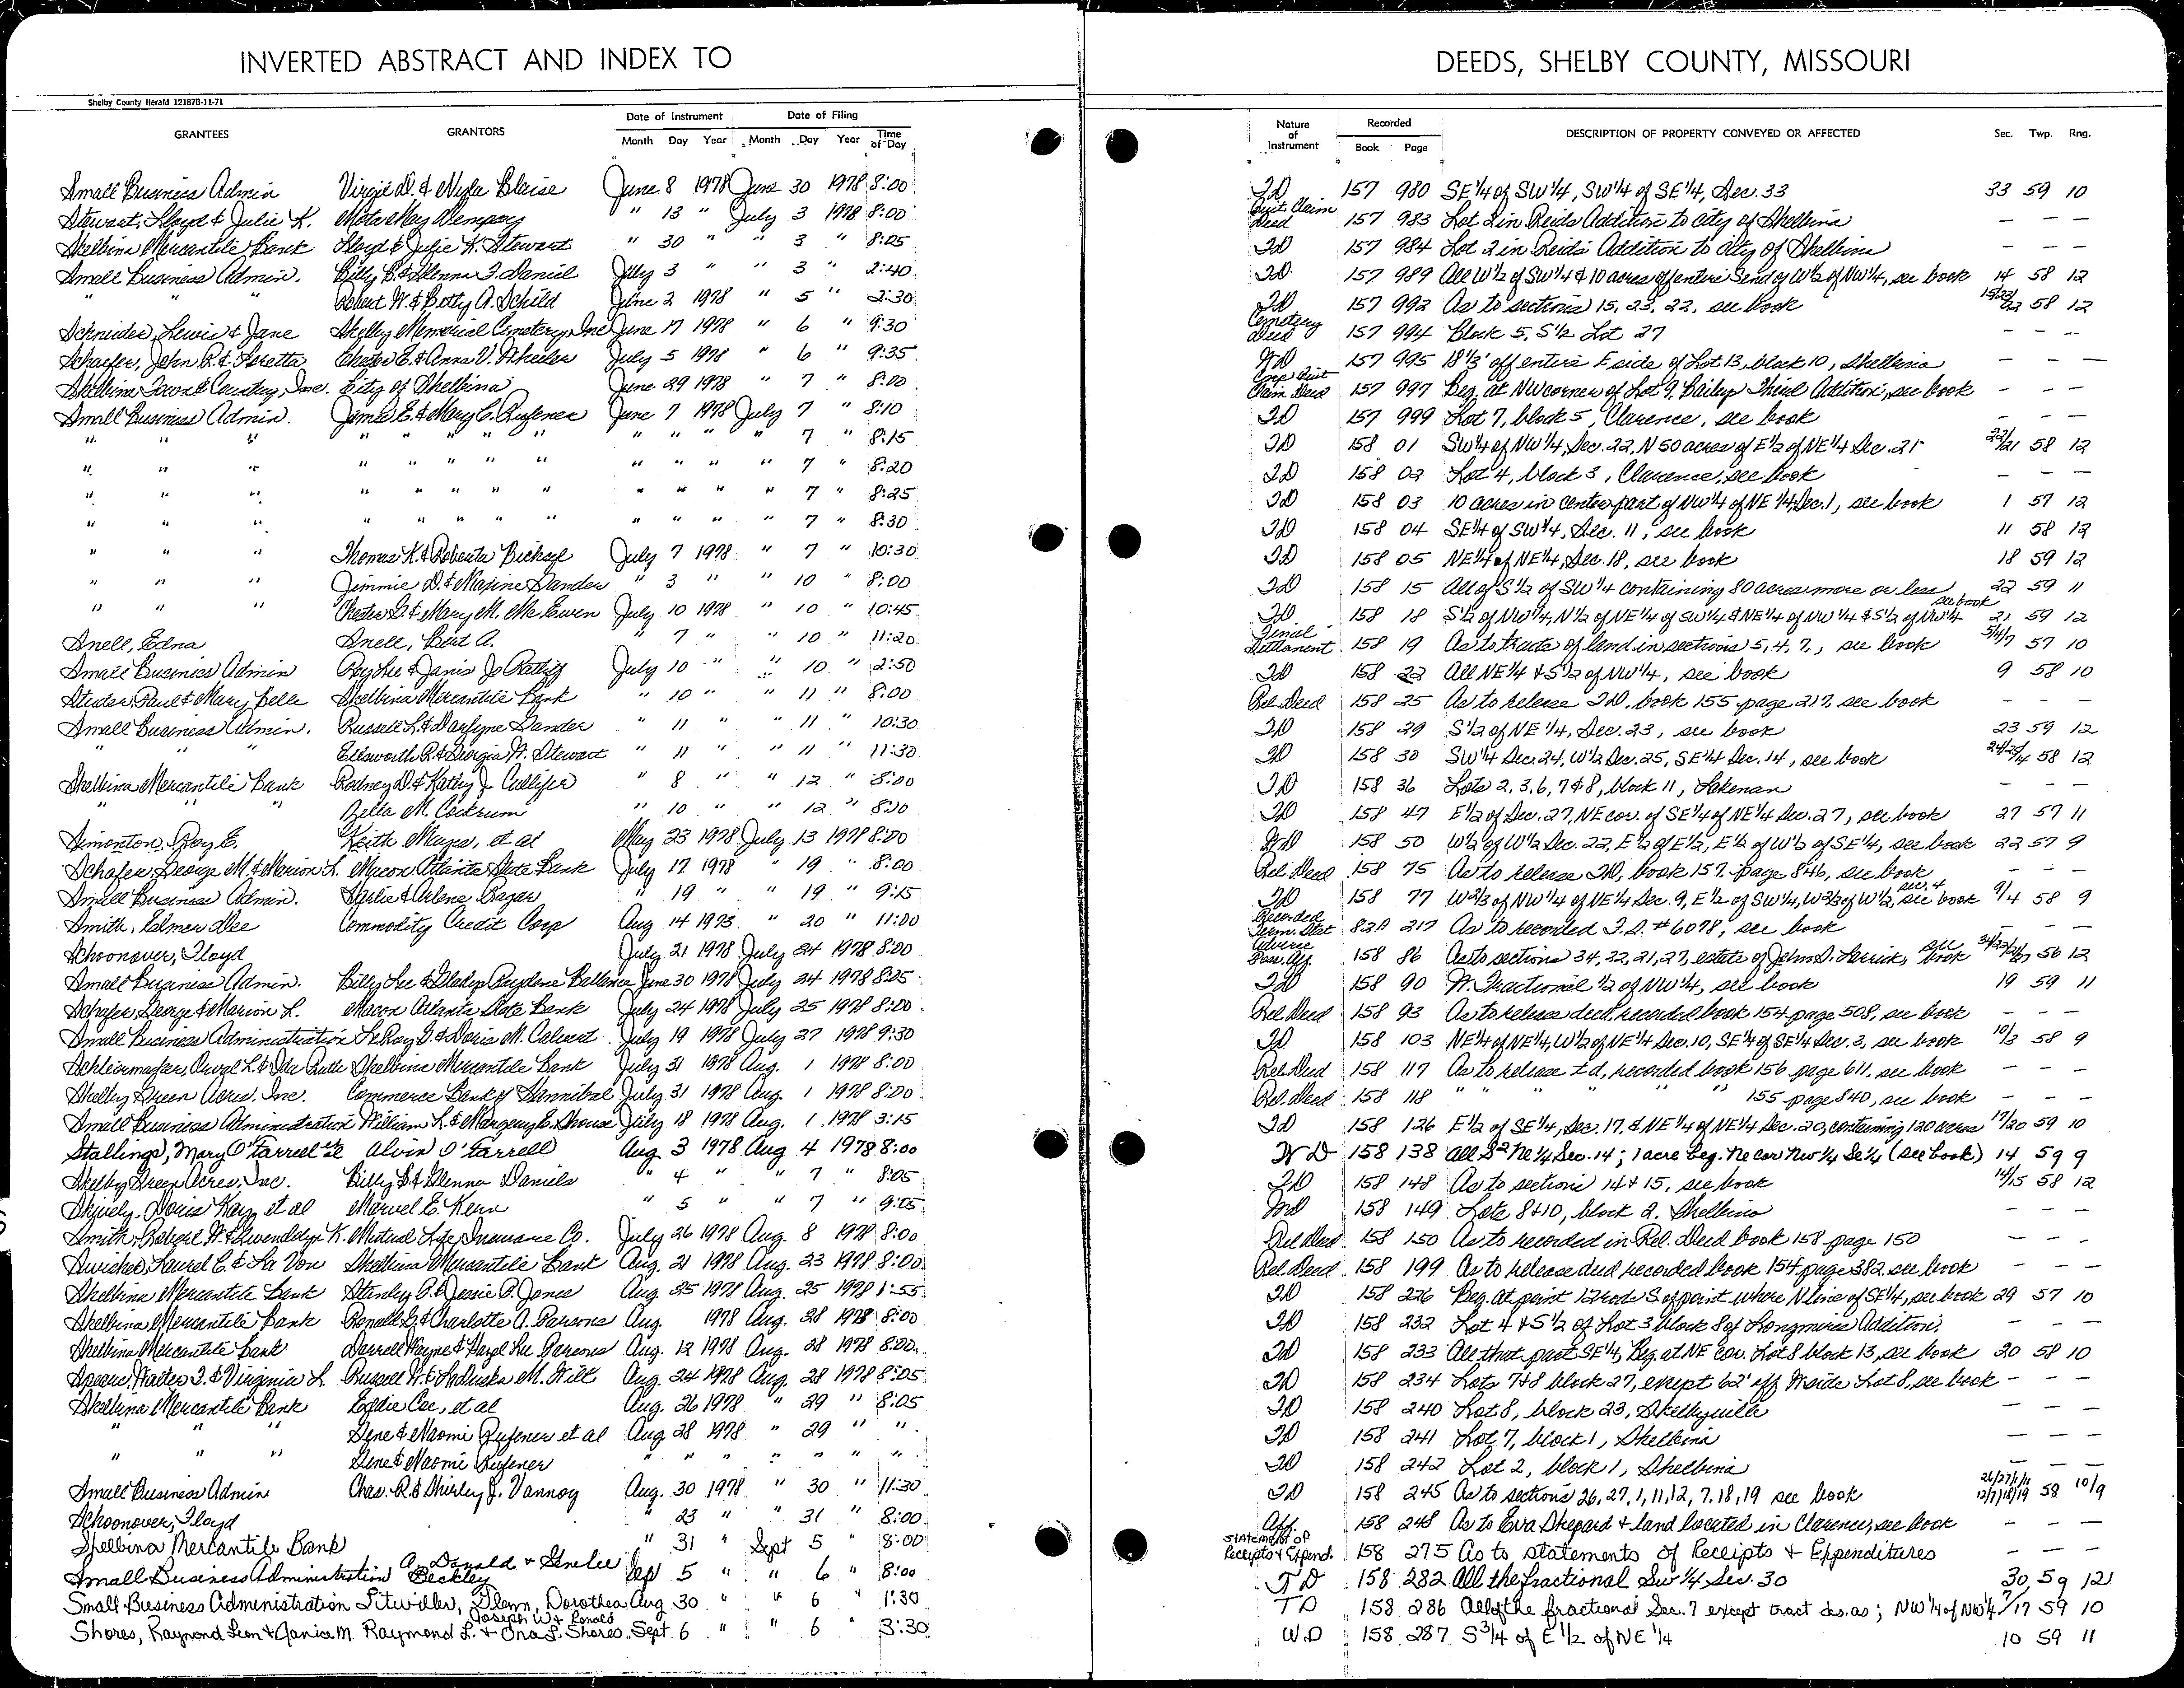 INVERTED ABSTRACT AND INDEX TO DEEDS, SHELBY COUNTY, MISSOURI
Shelby County Herald 12187B-11-71
GRANTEES GRANTORS Date of Instrument Month Day Year Date of Filing Month Day Year Time of Day Nature of Instrument Recorded Book Page DESCRIPTION OF PROPERTY CONVEYED OR AFFECTED Sec. Twp. Rng.
Small Business Admin Virgil D. & Nyla Blaise June 8 1978 June 30 1978 8:00 TD 157 980 SE¼ of SW¼, SW¼ of SE¼, Sec. 33 33 59 10
Stewart, Lloyd & Julie K. Mota May Dempsey " 13 " July 3 1978 8:00 Quit Claim Deed 157 983 Lot 2 in Reids Addition to city of Shelbina — — —
Shelbina Mercantile Bank Lloyd & Julie K. Stewart " 30 " " 3 " 8:05 TD 157 984 Lot 2 in Reid's Addition to city of Shelbina — — —
Small Business Admin. Billy B. & Glenna F. Daniel July 3 " " 3 " 2:40 TD 157 989 All W½ of SW¼ & 10 acres off entire S end of W½ of NW¼, see book 14 58 12
" " " Robert W. & Betty A. Schild June 2 1978 " 5 " 2:30 TD 157 992 As to sections 15, 23, 22, see book 15/23/22 58 12
Schneider, Lewis & Jane Shelby Memorial Cemetery, Inc June 17 1978 " 6 " 9:30 Cemetery Deed 157 994 Block 5, S½ Lot 27 — — —
Schaefer, John R. & Loretta Chester E. & Anna V. Wheeler July 5 1978 " 6 " 9:35 WD 157 995 18⅓' off entire E side of Lot 13, block 10, Shelbina — — —
Shelbina Town & Country, Inc. City of Shelbina June 29 1978 " 7 " 8:00 Corp Quit Claim Deed 157 997 Beg. at NW corner of Lot 9, Bailey Third Addition, see book — — —
Small Business Admin. James E. & Mary C. Rufener June 7 1978 July 7 " 8:10 TD 157 999 Lot 7, block 5, Clarence, see book — — —
" " " " " " " " " " " " " 7 " 8:15 TD 158 01 SW¼ of NW¼, Sec. 22, N 50 acres of E½ of NE¼ Sec. 21 22/21 58 12
" " " " " " " " " " " " " 7 " 8:20 TD 158 02 Lot 4, block 3, Clarence, see book — — —
" " " " " " " " " " " " " 7 " 8:25 TD 158 03 10 acres in center part of NW¼ of NE¼, Sec. 1, see book 1 57 12
" " " " " " " " " " " " " 7 " 8:30 TD 158 04 SE¼ of SW¼, Sec. 11, see book 11 58 12
" " " Thomas K. & Roberta Bicksel July 7 1978 " 7 " 10:30 TD 158 05 NE¼ of NE¼, Sec. 18, see book 18 59 12
" " " Jimmie D. & Maxine Sander " 3 " " 10 " 8:00 TD 158 15 All of S½ of SW¼ containing 80 acres more or less see book 22 59 11
" " " Chester D. & Mary M. McEwen July 10 1978 " 10 " 10:45 TD 158 18 S½ of NW¼, N½ of NE¼ of SW¼ & NE¼ of NW¼ & S½ of NW¼ 21 59 12
Snell, Edna Snell, Burt A. " 7 " " 10 " 11:20 Final Settlement 158 19 As to tracts of land in sections 5, 4, 7, see book 5/4/7 57 10
Small Business Admin Roy Lee & Janis Jo Rattliff July 10 " " 10 " 2:50 TD 158 22 All NE¼ & S½ of NW¼, see book 9 58 10
Studer, Paul & Mary Belle Shelbina Mercantile Bank " 10 " " 11 " 8:00 Rel. Deed 158 25 As to release TD, book 155 page 217, see book — — —
Small Business Admin. Russell L. & Darlyne Sander " 11 " " 11 " 10:30 TD 158 29 S½ of NE¼, Sec. 23, see book 23 59 12
" " Ellsworth R. & Georgia H. Stewart " 11 " " 11 " 11:30 TD 158 30 SW¼ Sec. 24, W½ Sec. 25, SE¼ Sec. 14, see book 24/25/14 58 12
Shelbina Mercantile Bank Rodney D. & Kathy J. Culliper " 8 " " 12 " 8:00 TD 158 36 Lots 2, 3, 6, 7 & 8, block 11, Lakenan — — —
" " " Zella M. Cockrum " 10 " " 12 " 8:10 TD 158 47 E½ of Sec. 27, NE cor. of SE¼ of NE¼ Sec. 27, see book 27 57 11
Simonton, Ray E. Keith Mayes, et al May 23 1978 July 13 1978 8:00 WD 158 50 W½ of W½ Sec. 22, E½ of E½, E½ of W½ of SE¼, see book 22 57 9
Schafer, George M. & Marion L. Macon Atlanta State Bank July 17 1978 " 19 " 8:00 Rel Deed 158 75 As to release TD, book 157 page 846, see book — — —
Small Business Admin. Harlie & Arlene Rager " 19 " " 19 " 9:15 TD 158 77 W⅔ of NW¼ of NE¼ Sec. 9, E½ of SW¼, W⅔ of W½, sec. 4 see book 9/4 58 9
Smith, Elmer Dee Commodity Credit Corp Aug 14 1973 " 20 " 11:00 Recorded Term. Stat 82A 217 As to recorded F.S. #6078, see book — — —
Schoonover, Floyd July 21 1978 July 24 1978 8:00 Adverse Poss. Aff. 158 86 As to sections 34, 22, 21, 27, estate of John S. Gerrick, see book 34/22/21/27 56 12
Small Business Admin. Billy Lee & Gladys Raydene Ballance June 30 1978 July 24 1978 8:25 TD 158 90 W. Fractional ½ of NW¼, see book 19 59 11
Schafer, George & Marion L. Macon Atlanta State Bank July 24 1978 July 25 1978 8:00 Rel Deed 158 93 As to release deed, recorded book 154 page 508, see book — — —
Small Business Administration LeRoy G. & Doris M. Calvert July 19 1978 July 27 1978 9:30 TD 158 103 NE¼ of NE¼, W½ of NE¼ Sec. 10, SE¼ of SE¼ Sec. 3, see book 10/3 58 9
Schleiermacher, Orval L. & Ida Ruth Shelbina Mercantile Bank July 31 1978 Aug. 1 1978 8:00 Rel. Deed 158 117 As to release td, recorded book 156 page 611, see book — — —
Shelby Green Acres, Inc. Commerce Bank of Hannibal July 31 1978 Aug. 1 1978 8:00 Rel. Deed 158 118 " " " " " 155 page 840, see book — — —
Small Business Administration William L. & Margery E. Shouse July 18 1978 Aug. 1 1978 3:15 TD 158 126 E½ of SE¼, Sec. 17, & NE¼ of NE¼ Sec. 20, containing 120 acres 17/20 59 10
Stallings, Mary O'Farrell et al Alvin O'Farrell Aug 3 1978 Aug 4 1978 8:00 WD 158 138 all S² Ne¼ Sec. 14; 1 acre beg. Ne cor Nw¼ Se¼ (see book) 14 59 9
Shelby Green Acres, Inc. Billy B. & Glenna Daniels " 4 " " 7 " 8:05 TD 158 148 As to sections 14 & 15, see book 14/15 58 12
Shively, Doris Kay, et al Marvel E. Kenn " 5 " " 7 " 9:05 WD 158 149 Lots 8 & 10, block 2, Shelbina — — —
Smith, Robert H. & Gwendolyn K. Mutual Life Insurance Co. July 26 1978 Aug. 8 1978 8:00 Rel Deed. 158 150 As to recorded in Rel. Deed book 158 page 150 — — —
Swisher, Laurel E. & La Von Shelbina Mercantile Bank Aug. 21 1978 Aug. 23 1978 8:00 Rel. Deed 158 199 As to release deed recorded book 154 page 382, see book — — —
Shelbina Mercantile Bank Stanley P. & Jessie P. Jones Aug 25 1978 Aug. 25 1978 1:55 TD 158 226 Beg. at point 12 rods S of point where N line of SE¼, see book 29 57 10
Shelbina Mercantile Bank Ronald G. & Charlotte A. Parsons Aug. 1978 Aug. 28 1978 8:00 TD 158 232 Lot 4 & S½ of Lot 3 block 8 of Longmires Addition. — — —
Shelbina Mercantile Bank Darrell Wayne & Daryl Lee Parsons Aug. 12 1978 Aug. 28 1978 8:00 TD 158 233 All that part SE¼, Beg. at NE cor. Lot 8 block 13, see book 20 58 10
Spears, Walter T. & Virginia L. Russell W. & LaDuska M. Hilt Aug. 24 1978 Aug. 28 1978 8:05 TD 158 234 Lots 7 & 8 block 27, except 62' off W side Lot 8, see book — — —
Shelbina Mercantile Bank Eddie Coe, et al Aug. 26 1978 " 29 " 8:05 TD 158 240 Lot 8, block 23, Shelbyville — — —
" " " Gene & Naomi Rufener et al Aug 28 1978 " 29 " " TD 158 241 Lot 7, block 1, Shelbina — — —
" " " Gene & Naomi Rufener " " " " " " " TD 158 242 Lot 2, block 1, Shelbina — — —
Small Business Admin Chas. R. & Shirley J. Vannoy Aug. 30 1978 " 30 " 11:30 TD 158 245 As to sections 26, 27, 1, 11, 12, 7, 18, 19 see book 26/27/1/11 12/7/18/19 58 10/9
Schoonover, Floyd " 23 " " 31 " 8:00 Aff. 158 248 As to Eva Shepard & land located in Clarence, see book — — —
Shelbina Mercantile Bank " 31 " Sept 5 " 8:00 Statement of Receipts & Expend. 158 275 As to statements of Receipts & Expenditures — — —
Small Business Administration A. Donald & Genelee Beckley Sept 5 " " 6 " 8:00 TD 158 282 All the fractional Sw¼ Sec. 30 30 59 12
Small Business Administration Litwiller, Glenn, Dorothea Aug 30 " " 6 " 1:30 TD 158 286 All of the fractional Sec. 7 except tract des. as; NW¼ of NW¼ 7/17 59 10
Shores, Raymond Leon & Janice M. Joseph W & Ronald Raymond L. & Ona L. Shores Sept. 6 " " 6 " 3:30 W.D 158 287 S¾ of E½ of NE¼ 10 59 11